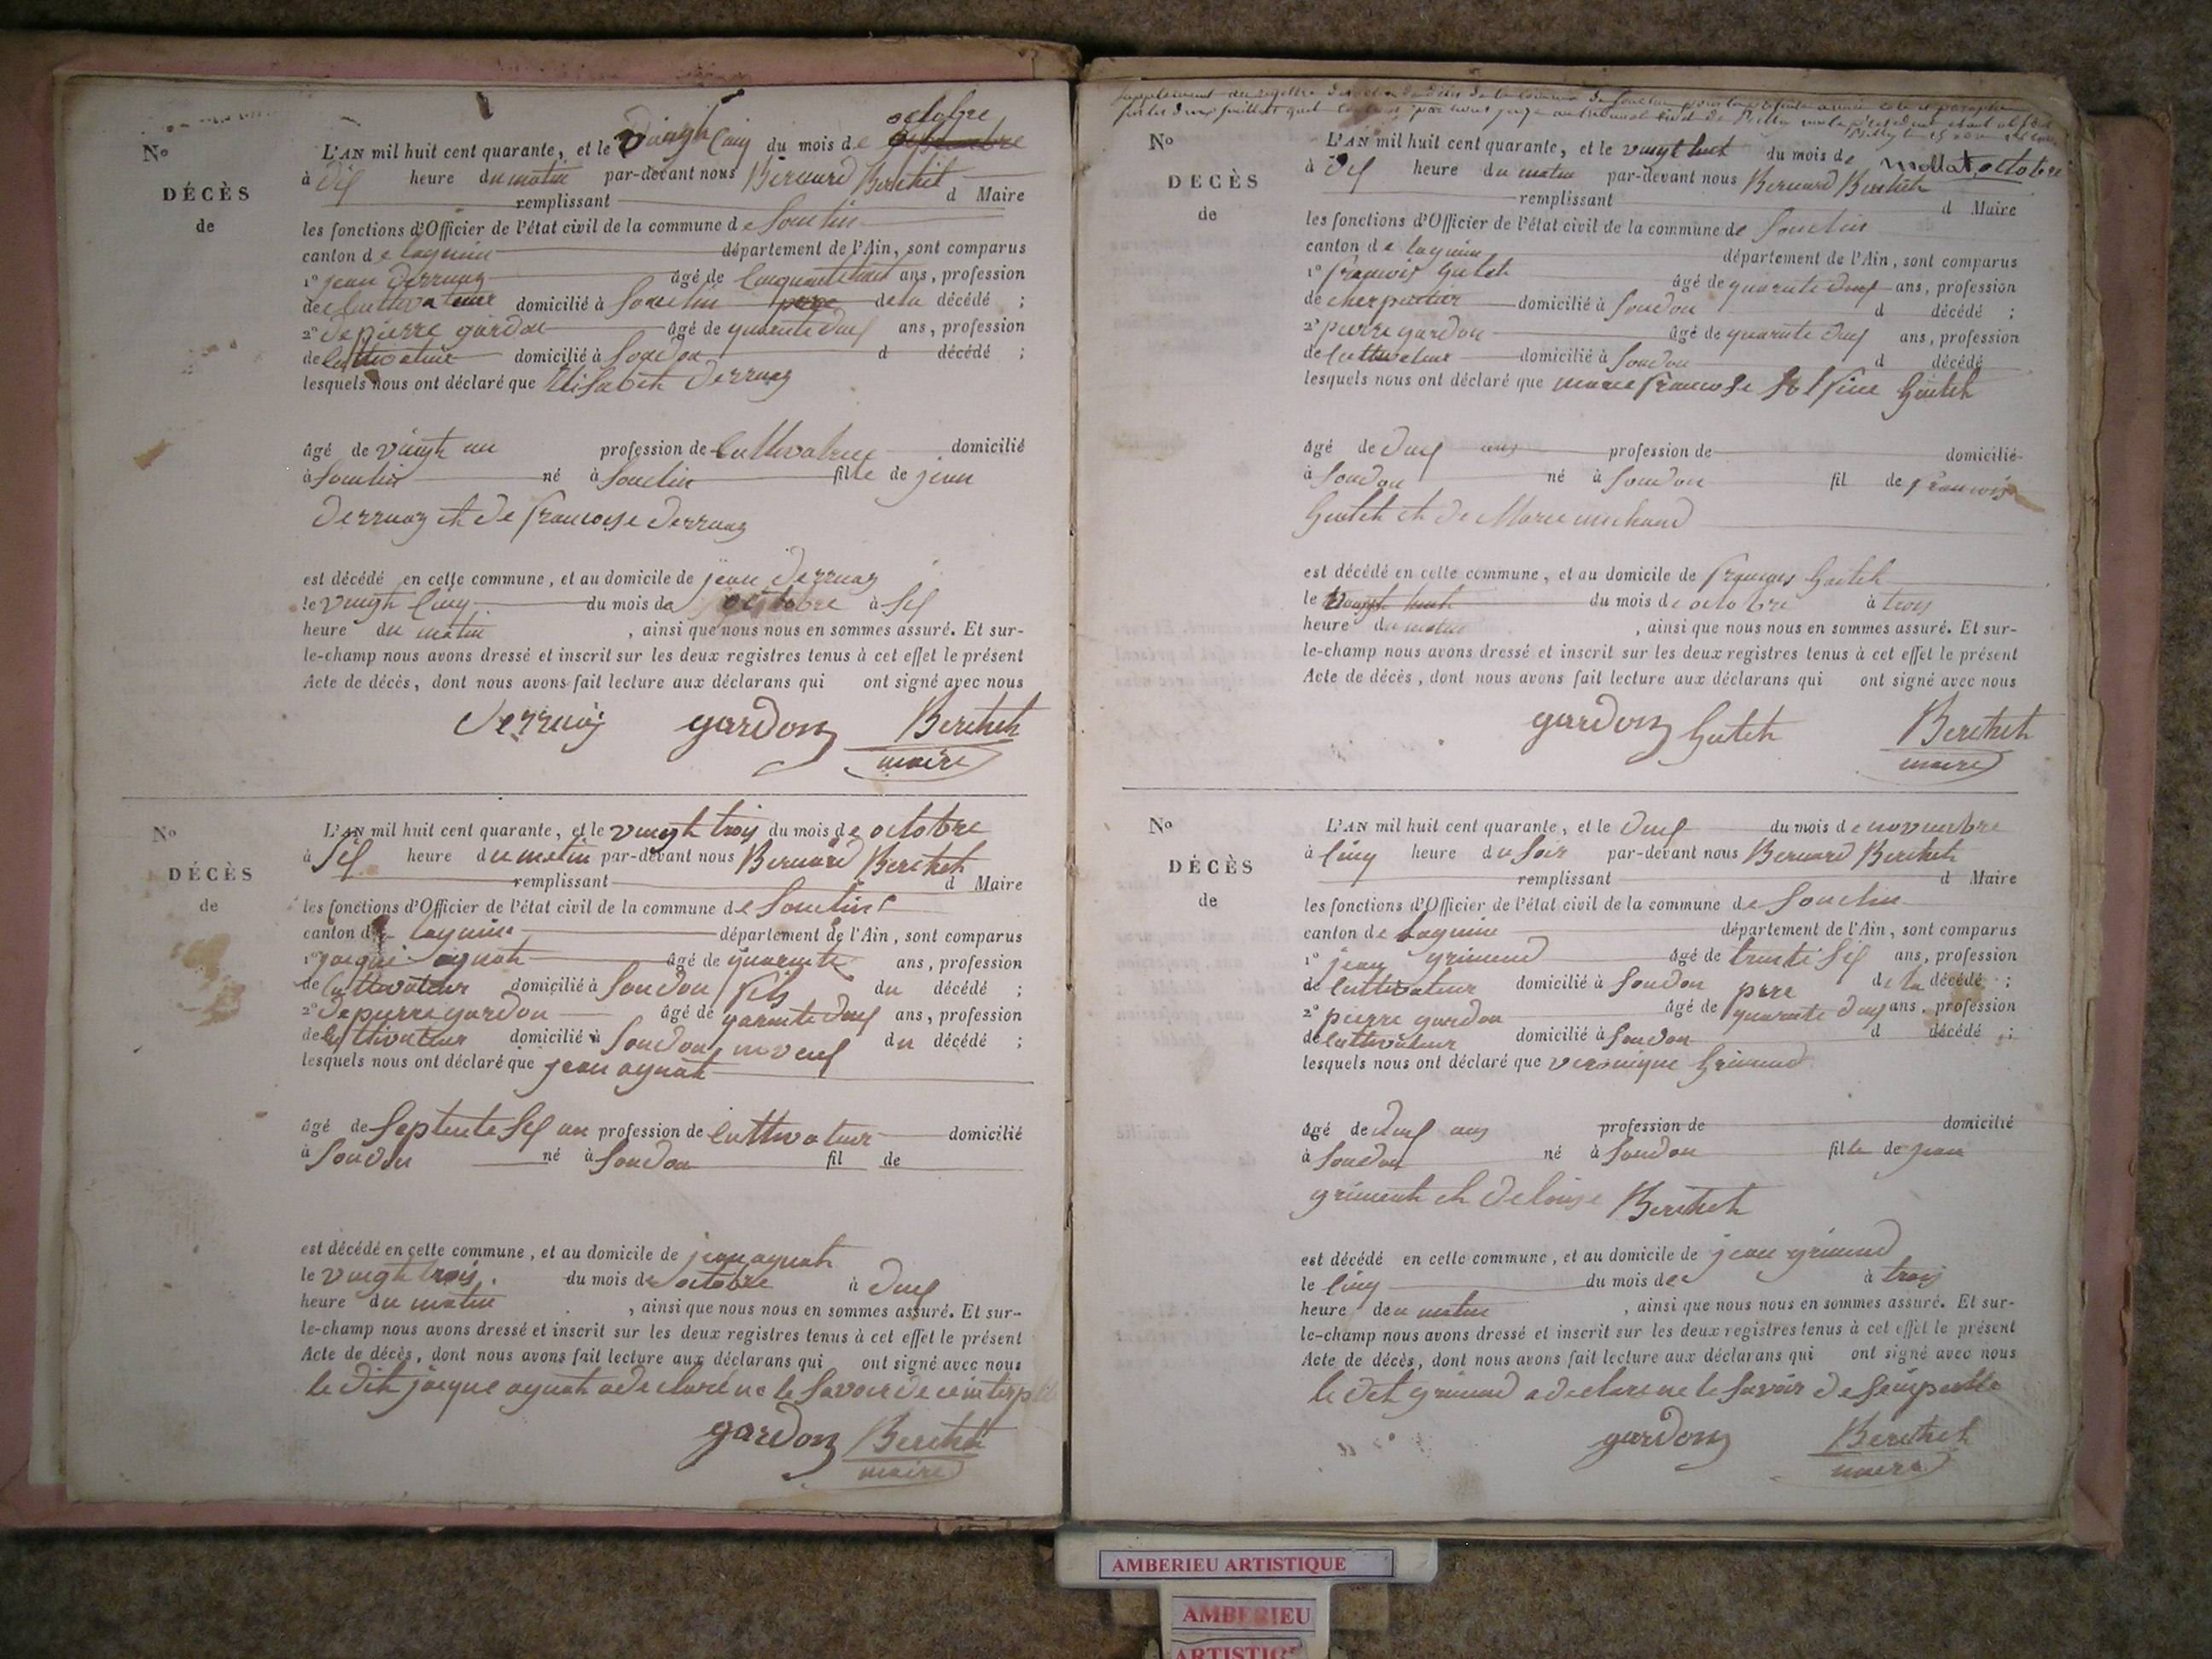 octobre
L'AN mil huit cent quarante, et le vingh cinq du mois de
N°
à dix heure du matin par-devant nous Bernard Berthet
DÉCÈS
remplissant d Maire
de
les fonctions d'Officier de l'état civil de la commune de Souclin
canton de lagnieu département de l'Ain, sont comparus
1° jean derruaz âgé de ans, profession
de cultivateur domicilié à Souclin pere de la décédé ;
2° de pierre gardon âgé de quarente deux ans, profession
de cultivateur domicilié à Soudon d décédé ;
lesquels nous ont déclaré que Elisabeth derruaz
âgé de vingh an profession de cultivatrice domicilié
à Souclin né à Souclin fille de jean
derruaz et de francoise derruaz
est décédé en cette commune, et au domicile de jean derruaz
le vingh cinq du mois de octobre à six
heure du matin , ainsi que nous nous en sommes assuré. Et sur-
le-champ nous avons dressé et inscrit sur les deux registres tenus à cet effet le présent
Acte de décès, dont nous avons fait lecture aux déclarans qui ont signé avec nous
derruaz gardon Berthet
maire
N°
L'AN mil huit cent quarante, et le vingh trois du mois de octobre
à six heure du matin par-devant nous Bernard Berthet
DÉCÈS
remplissant d Maire
de
les fonctions d'Officier de l'état civil de la commune de Souclin
canton de lagnieu département de l'Ain, sont comparus
1° jacque aynat âgé de quarente ans, profession
de cultivateur domicilié à Soudon fils du décédé ;
2° de pierre gardon âgé de quarente deux ans, profession
de cultivateur domicilié à Soudon neveux du décédé ;
lesquels nous ont déclaré que jean aynat
âgé de septente six an profession de cultivateur domicilié
à Soudon né à Soudon fil de
est décédé en cette commune, et au domicile de jean aynat
le vingh trois du mois de octobre à deux
heure du matin , ainsi que nous nous en sommes assuré. Et sur-
le-champ nous avons dressé et inscrit sur les deux registres tenus à cet effet le présent
Acte de décès, dont nous avons fait lecture aux déclarans qui ont signé avec nous
le dit jacque aynat a declaré ne le savoir de ce
gardon Berthet
maire
Supplement au registre de la commune de Souclin
N°
L'AN mil huit cent quarante, et le vingt huit du mois de octobre
à dix heure du matin par-devant nous Bernard Berthet
DÉCÈS
remplissant d Maire
de
les fonctions d'Officier de l'état civil de la commune de Souclin
canton de lagnieu département de l'Ain, sont comparus
1° francois Guteh âgé de quarente deux ans, profession
de cherpantier domicilié à Soudon d décédé ;
2° pierre gardon âgé de quarente deux ans, profession
de cultivateur domicilié à Soudon d décédé
lesquels nous ont déclaré que marie francoise
âgé de deux ans profession de domicilié
à Soudon né à Soudon fil de francois
et de Marie michaud
est décédé en cette commune, et au domicile de francois
le vingh huit du mois de octobre à trois
heure du matin , ainsi que nous nous en sommes assuré. Et sur-
le-champ nous avons dressé et inscrit sur les deux registres tenus à cet effet le présent
Acte de décès, dont nous avons fait lecture aux déclarans qui ont signé avec nous
gardon Guteh Berthet
maire
N°
L'AN mil huit cent quarante, et le deux du mois de novembre
à cinq heure du soir par-devant nous Bernard Berthet
DÉCÈS
remplissant d Maire
de
les fonctions d'Officier de l'état civil de la commune de Souclin
canton de Lagnieu département de l'Ain, sont comparus
1° jean grimaud âgé de trente six ans, profession
de cultivateur domicilié à Soudon pere de la décédé ;
2° pierre gardon âgé de quarente deux ans, profession
de cultivateur domicilié à Soudon d décédé ;
lesquels nous ont déclaré que veronique Grimaud
âgé de deux ans profession de domicilié
à Soudon né à Soudon fille de jean
et de louise Berthet
est décédé en cette commune, et au domicile de jean grimaud
le cinq du mois de à trois
heure de matin , ainsi que nous nous en sommes assuré. Et sur-
le-champ nous avons dressé et inscrit sur les deux registres tenus à cet effet le présent
Acte de décès, dont nous avons fait lecture aux déclarans qui ont signé avec nous
le dit grimaud a declare ne le savoir de
gardon Berthet
maire
AMBERIEU ARTISTIQUE
AMBERIEU
ARTISTIQ